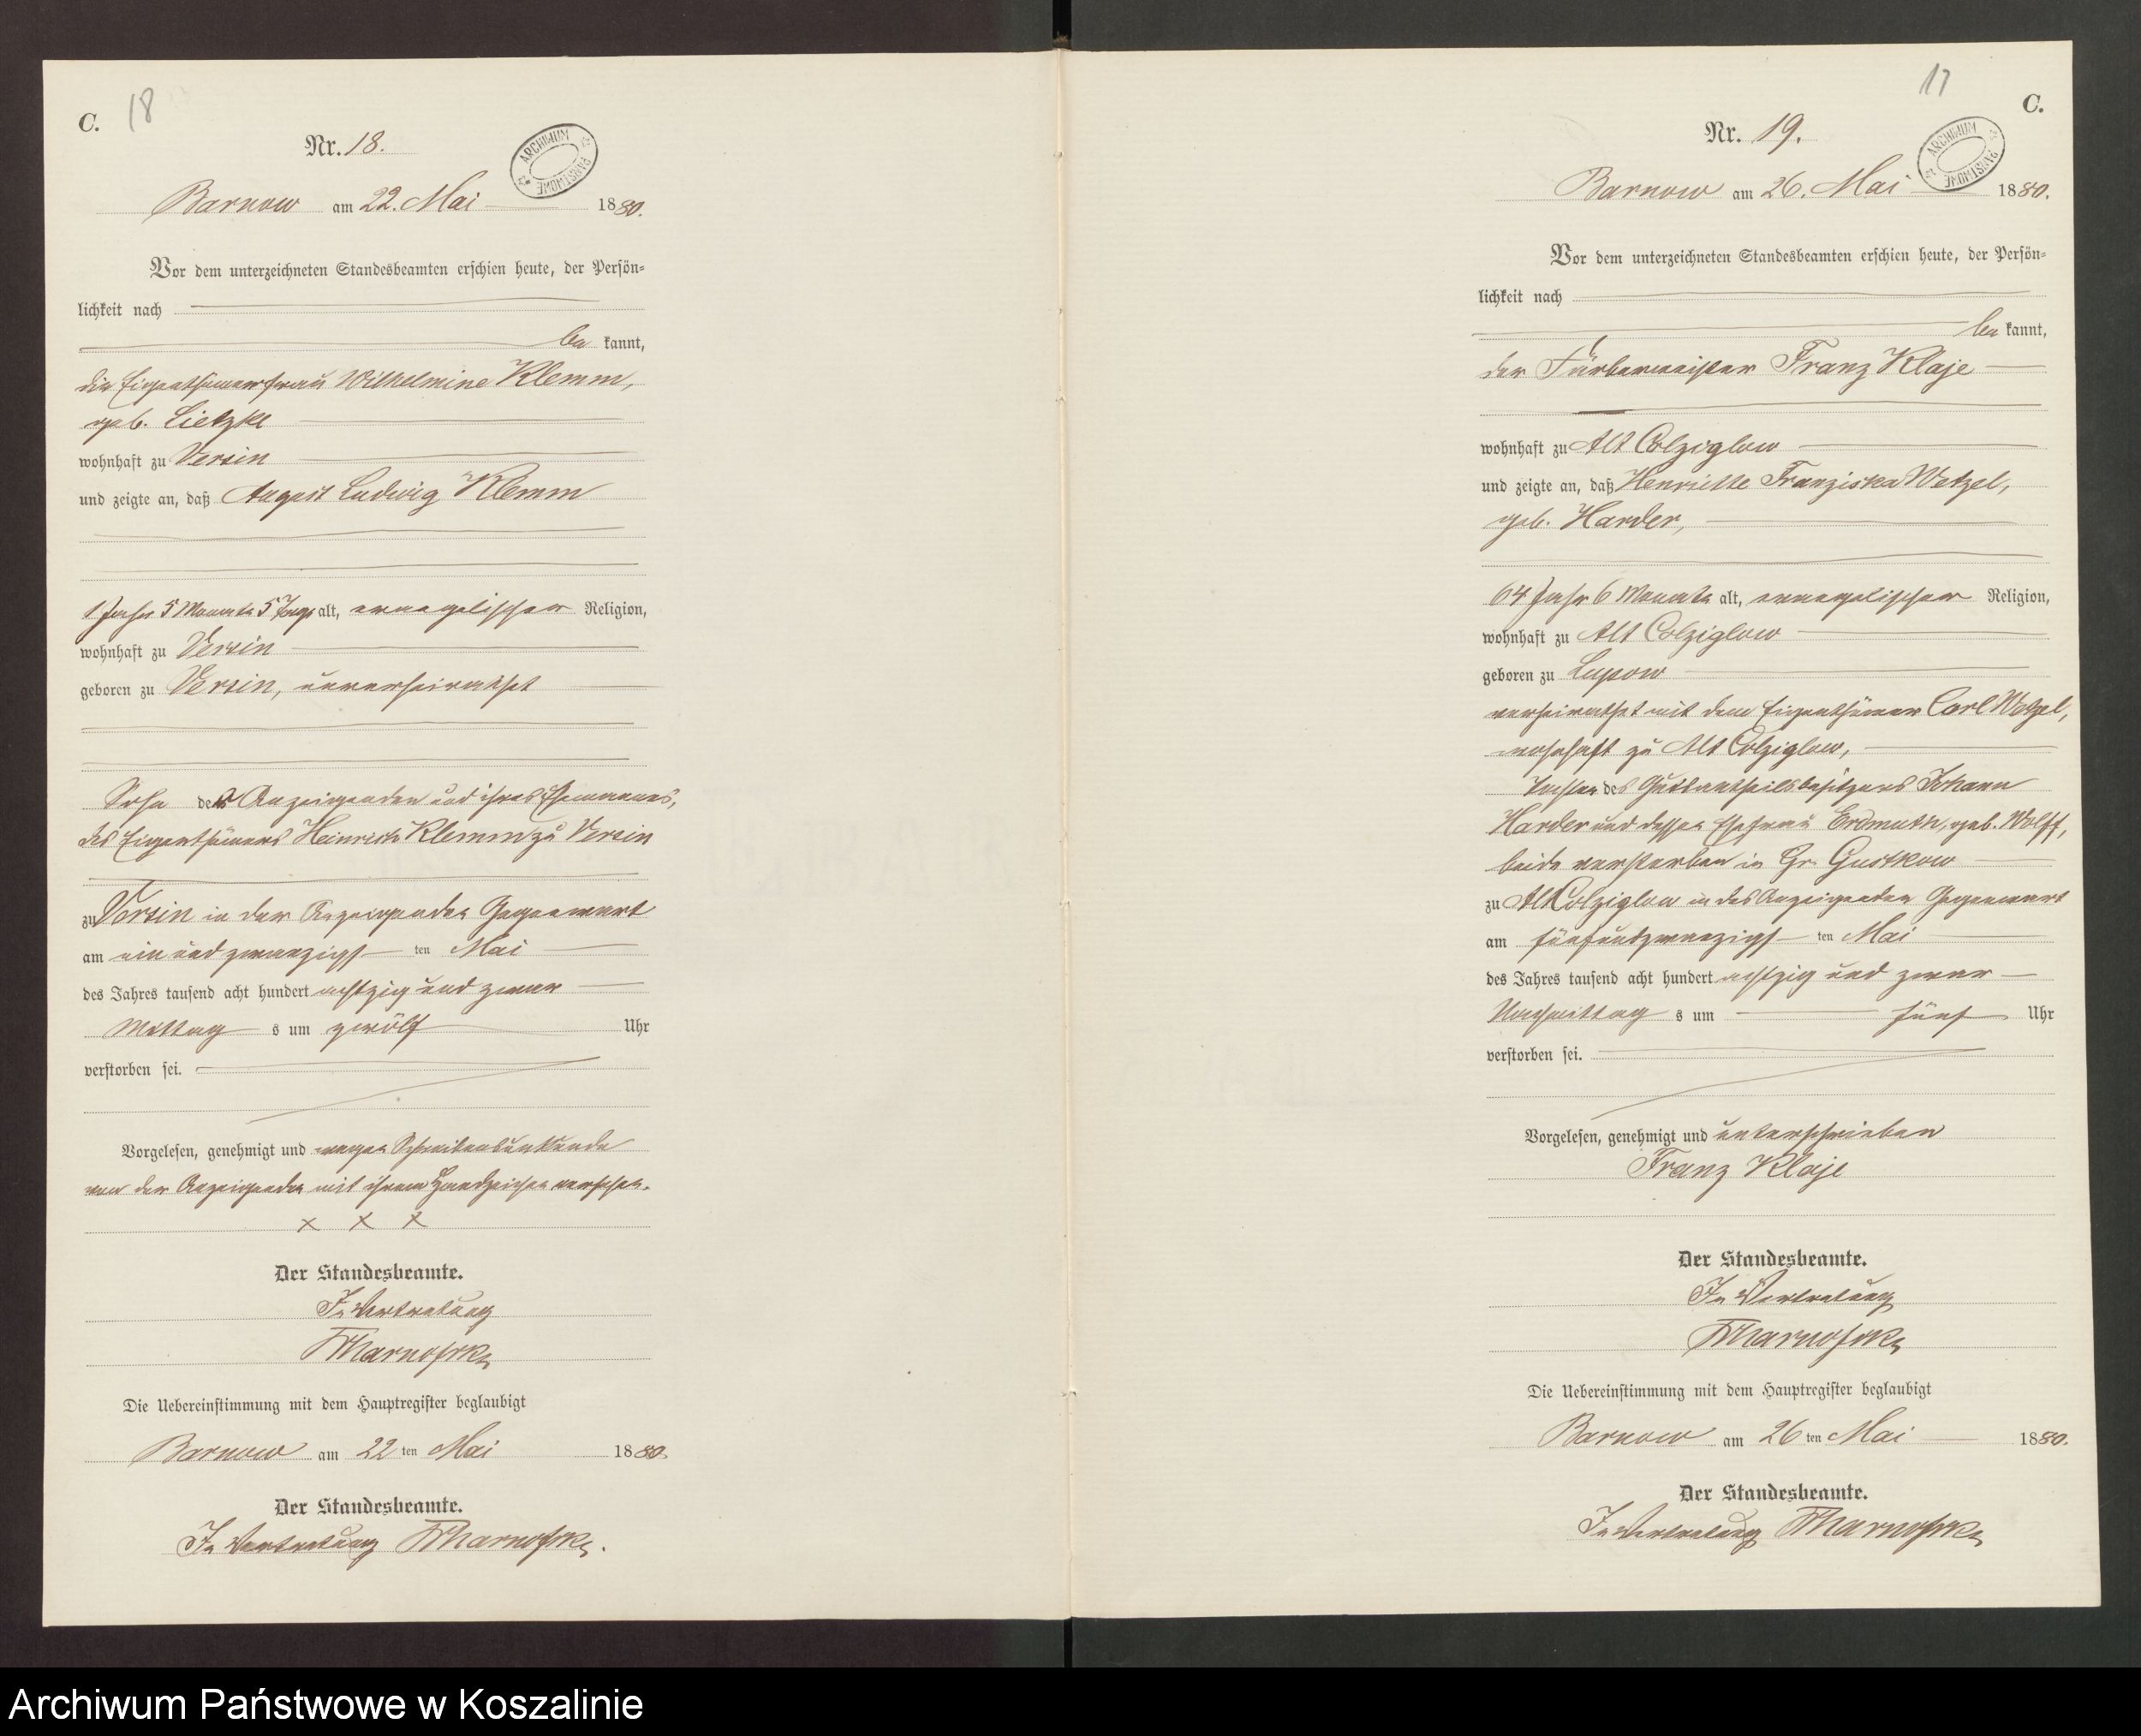 C.
18
Nr. 18.
ARCHIWUM PAŃSTWOWE
Barnow am 22. Mai 1880.
Vor dem unterzeichneten Standesbeamten erschien heute, der Persön-
lichkeit nach
be kannt,
die Eigenthümerfrau Wilhelmine Klemm,
geb. Lietzke
wohnhaft zu Versin
und zeigte an, daß August Ludwig Klemm
1 Jahr 5 Monate 5 Tage alt, evangelischer Religion,
wohnhaft zu Versin
geboren zu Versin, unverheirathet
Sohn der Anzeigenden und ihres Ehemannes,
des Eigenthümers Heinrich Klemm zu Versin
zu Versin in der Anzeigenden Gegenwart
am ein und zwanzigsten Mai
des Jahres tausend acht hundert achtzig und zwar
Mittags um zwölf Uhr
verstorben sei.
Vorgelesen, genehmigt und wegen Schreibensunkunde
von der Anzeigenden mit ihrem Handzeichen versehen.
x x x
Der Standesbeamte.
In Vertretung
Die Uebereinstimmung mit dem Hauptregister beglaubigt
Barnow am 22ten Mai 1880.
Der Standesbeamte.
In Vertretung
17
C.
Nr. 19.
ARCHIWUM PAŃSTWOWE
Barnow am 26. Mai 1880.
Vor dem unterzeichneten Standesbeamten erschien heute, der Persön-
lichkeit nach
be kannt,
der Färbermeister Franz Klaje
wohnhaft zu Alt Colziglow
und zeigte an, daß Henriette Franziska Wetzel,
geb. Harder,
64 Jahr 6 Monate alt, evangelischer Religion,
wohnhaft zu Alt Colziglow
geboren zu Lupow
verheirathet mit dem Eigenthümer Carl Wetzel,
wohnhaft zu Alt Colziglow,
Tochter des Gutsantheilsbesitzers Johann
Harder und dessen Ehefrau Erdmuth, geb. Wolff,
beide verstorben in Gr. Gustkow
zu Alt Colziglow in des Anzeigenden Gegenwart
am fünfundzwanzigsten Mai
des Jahres tausend acht hundert achtzig und zwar
Nachmittags um fünf Uhr
verstorben sei.
Vorgelesen, genehmigt und unterschrieben
Franz Klaje
Der Standesbeamte.
In Vertretung
Die Uebereinstimmung mit dem Hauptregister beglaubigt
Barnow am 26ten Mai 1880.
Der Standesbeamte.
In Vertretung
Archiwum Państwowe w Koszalinie